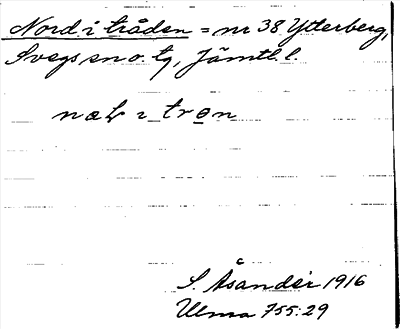 Nord i tråden = nr 38 Ytterberg,
Svegs sn o. tg, Jämtl. l.
S. Åsander 1916
Ulma 755:29